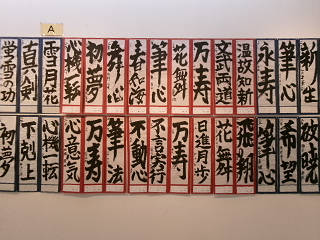 A
新生
筆心
永寿
温故知新
文武両道
万寿
花舞
筆心
初夢
心機一転
雪月花
真剣
蛍雪の功
破暁
希望
筆心
飛翔
花舞
日進月歩
万寿
不言実行
不動心
筆法
万寿
心意気
心機一転
下剋上
初夢